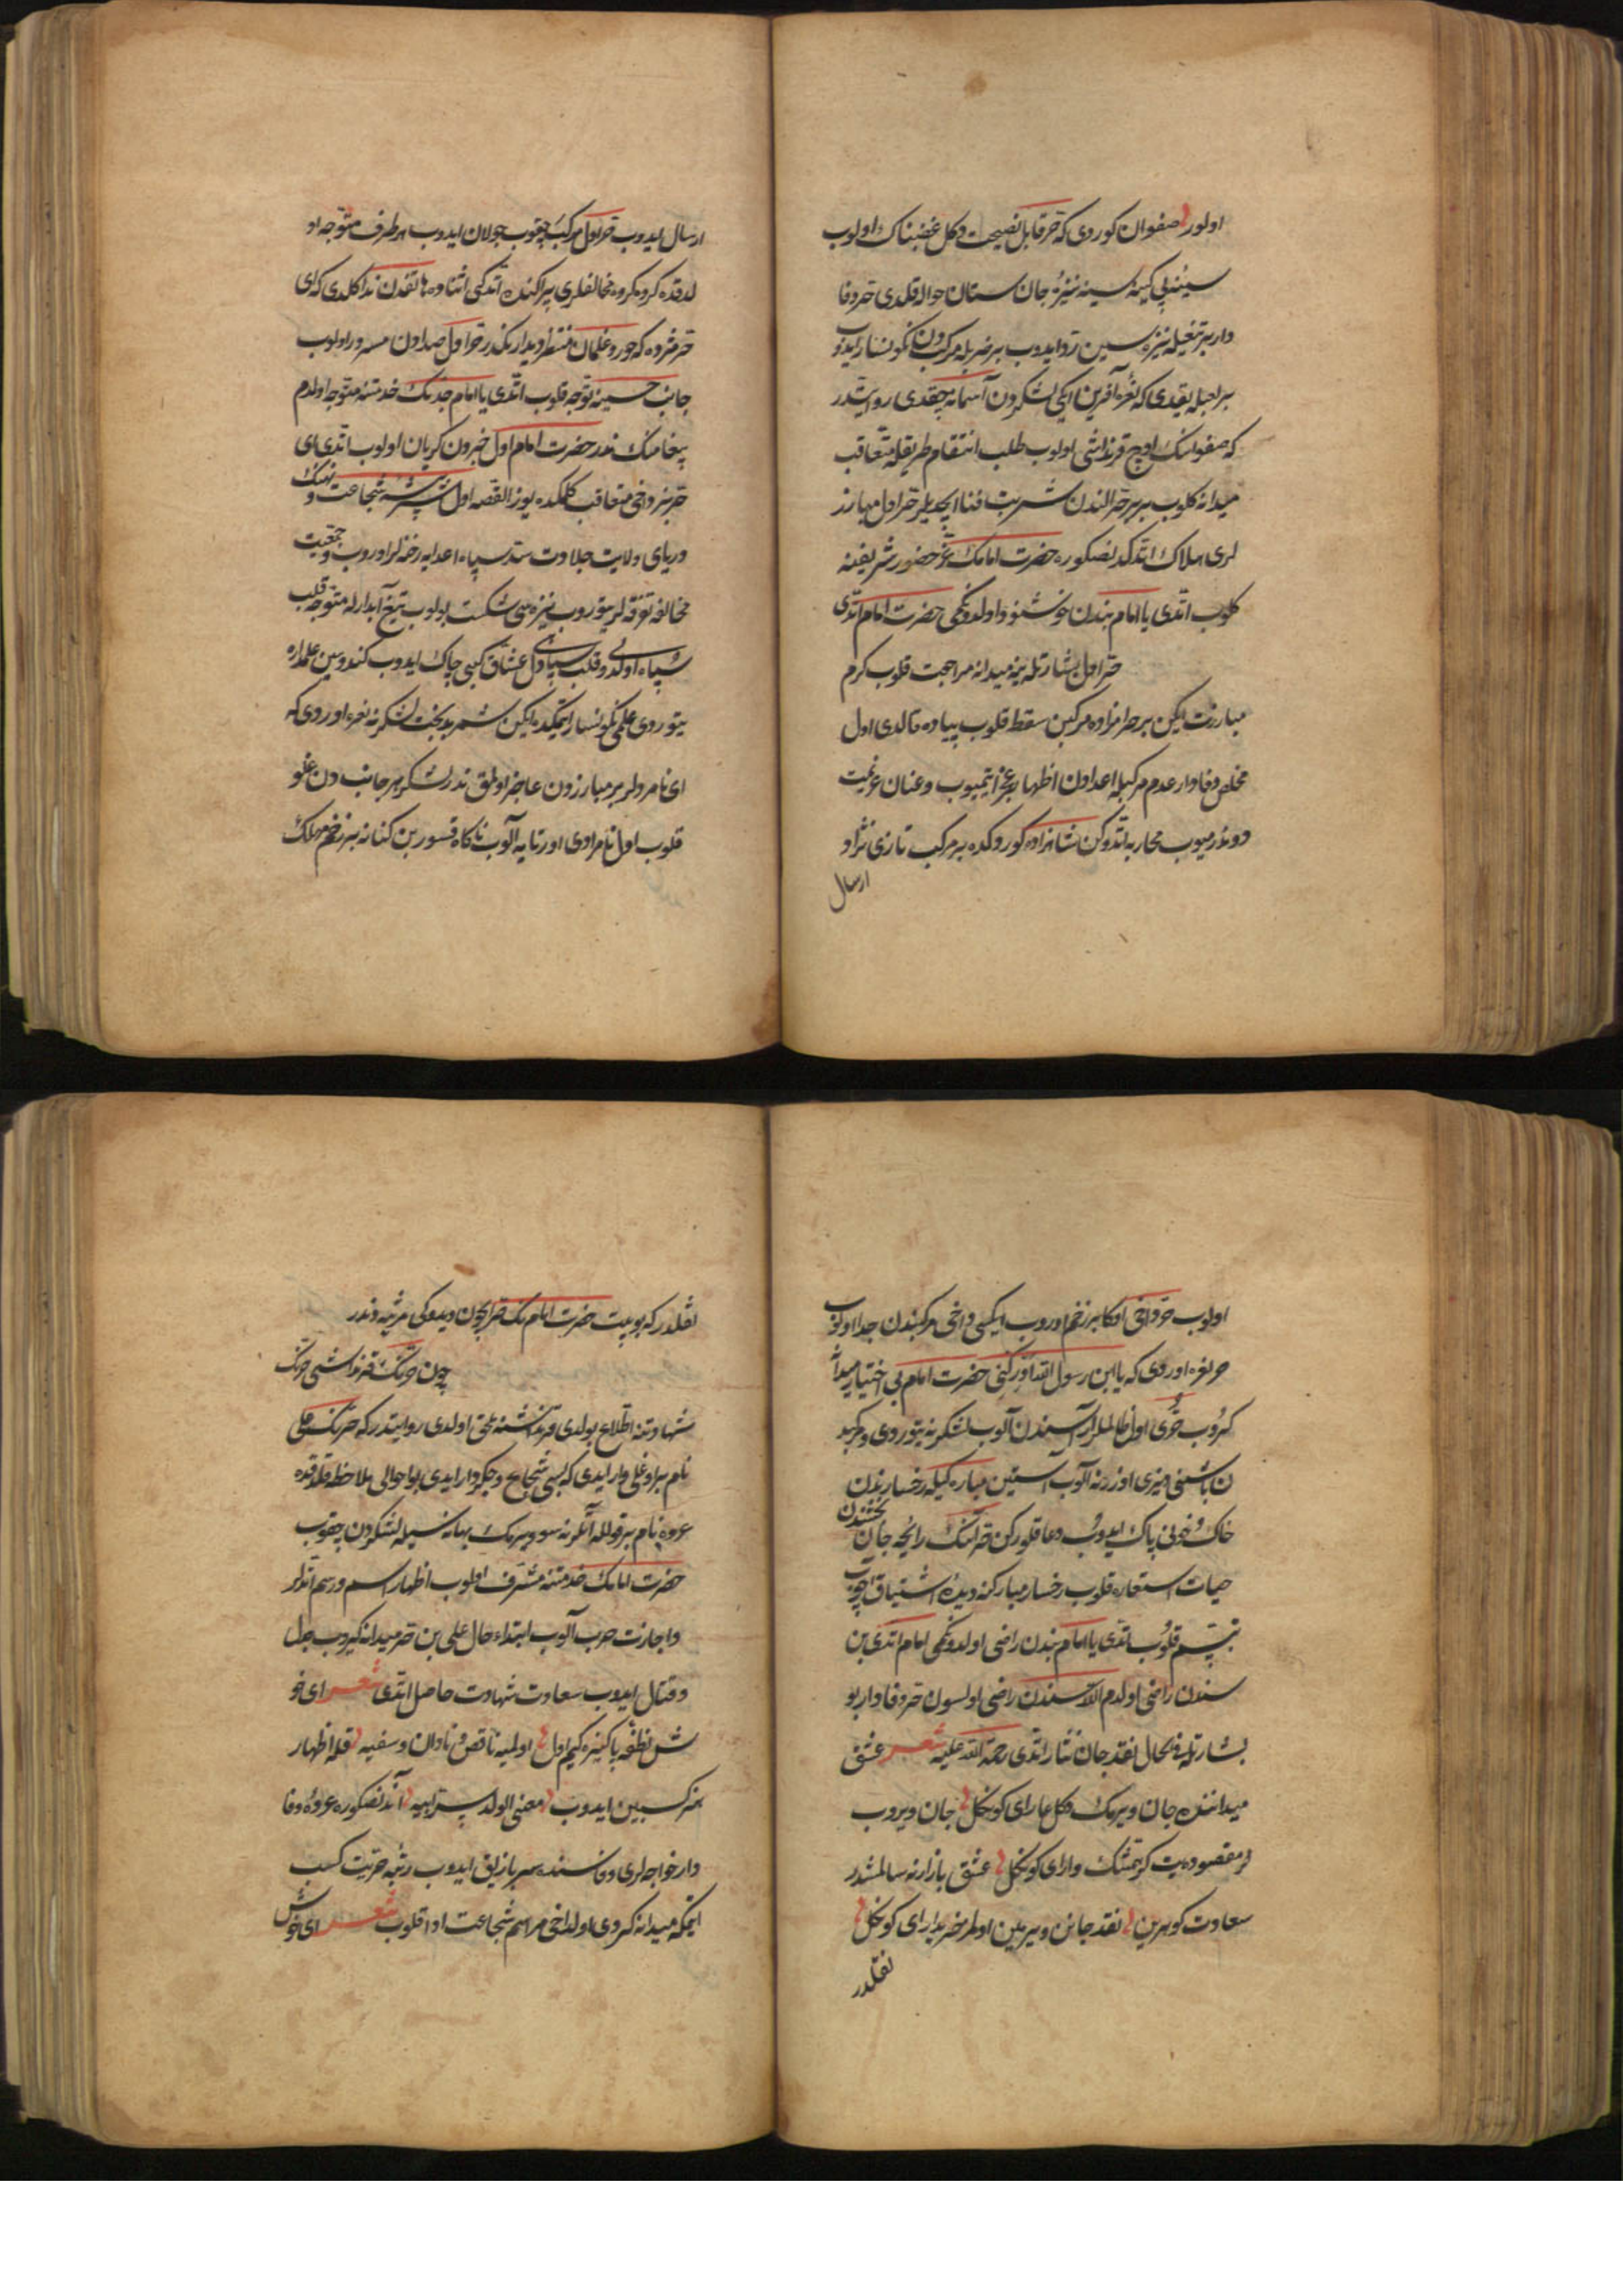 اولور صفوان کوردی که حر قابل نصیحت دکل غضبناک اولوب
سینه پر کینه سینه نیزهٔ جان ستان حواله قلدی حر وفا
دار بر تیغیله نیزه سین رد ایدوب بر ضربله مرکبدن نکونسار ایدوب
بر اعیله یقدی که نعره آفرین ایکی لشکردن آسمانه چقدی روایتدر
که صفوانک اوچ قرنداشی اولوب طلب انتقام طریقله متعاقب
میدانه کلوب بربر حر الندن شربت فنا ایچدیلر حر اول مبارز
لری هلاک اتدکدنصکوره حضرت امامک حضور شریفنه
کلوب اتدی یا امام بندن خوشنود اولدوکمی حضرت امام اتدی
حر اول بشارتله ینه میدانه مراجعت قلوب کرم
مبارزت ایکن بر حرامزاده مرکبین سقط قلوب پیاده قالدی اول
مخلص وفادار عدم مرکبله اعدادن اظهار عجز ایتمیوب و عنان عزیمت
دوندرمیوب محاربه اتدوکن شاهزاده کوردکده بر مرکب تازی نژاد
ارسال
ارسال ایدوب حر اول مرکبه چقوب جولان ایدوب هر طرف متوجه او
لدقده کروه کروه مخالفلری پراکنده اتدکی اثناده هاتفدن ندا کلدی که ای
حر مژده که حور و غلمان منتظر دیدارکدر حر اول صدادن مسرور اولوب
جانب حسینه توجه قلوب اتدی یا امام جدیک خدمتنه متوجه اولدم
پیغامک ندر حضرت امام اول خبردن کریان اولوب اتدی ای
حر بز دخی متعاقب کلمکده یوز القصه اول شیر بیشهٔ شجاعت و نهنک
دریای ولایت جلادت سد سپاه اعدایه رخنه لر اوروب و جمعیت
مخالفه تفرقه لر یتوروب نیزه سی شکست بولوب تیغ آبدارله متوجه قلب
سپاه اولدی و قلب سپاهی دل عشاق کبی چاک ایدوب کندوسین علمداره
یتوردی علمی نکونسار ایتمکده ایکن شمر بدبخت لشکرنه نعره اوردی که
ای نامردلر بر مبارزدن عاجز اولمق ندر لشکر هر جانبدن غلو
قلوب اول نامرادی اورتایه آلوب ناکاه قسور بن کنانه بر زخم مهلک
اولوب حر دخی اکا بر زخم اوروب ایکیسی دخی مرکبندن جدا اولوب
حر نعره اوردی که یا ابن رسول الله ادرکنی حضرت امام بی اختیار میدانه
کروب حری اول ظالملر آراسندن آلوب لشکرنه یتوردی و مرکبد
ن باشنی دیزی اوزرنه آلوب آستین مبارکیله رخسارندن
خاک و خونی پاک ایدوب دعا قلورکن حر انک رایحه جان بخشندن
حیات استعاره قلوب رخسار مبارکنه دیدهٔ اشتیاق آچوب
تبسم قلوب اتدی یا امام بندن راضی اولدوکمی امام اتدی بن
سندن راضی اولدم الله سندن راضی اولسون حر وفادار بو
بشارتله فی الحال نقد جان نثار اتدی رحمة الله علیه شعر عشق
میداننده جان ویرمک دکل عار ای کوکل جان ویروب
لر مقصوده یت کر همتک وار ای کوکل عشق بازارنه سالمشدر
سعادت کوهرین نقد جانن ویرمین اولمز خریدار ای کوکل
نقلدر
نقلدر که بو بیت حضرت امامک حر ایچون دیدوکی مرثیه دندر
چون حرک قرنداشی حرک
شهادتنه اطلاع بولدی قرنداشنه ملحق اولدی روایتدر که حرک علی
نام بر اوغلی وار ایدی که بسی شجاع و جکردار ایدی بو احوالی ملاحظه قلدقده
عروه نام بر قولله آتلرنه سو ویرمک بهانه سیله لشکردن چقوب
حضرت امامک خدمتنه مشرف اولوب اظهار اسم و رسم اتدلر
و اجازت حرب آلوب ابتداء حال علی بن حر میدانه کیروب جدل
و قتال ایدوب سعادت شهادت حاصل اتدی شعر ای خو
ش نطفهٔ پاکیزه کیم اول اولمیه ناقص و نادان و سفیه قله اظهار
هنر کسبین ایدوب معنی الولد سر ابیه آندنصکوره عروهٔ وفا
دار خواجه لری وفاسنده سربازلق ایدوب رتبه حریت کسب
ایتمکه میدانه کردی اولدخی مراسم شجاعت ادا قلوب شعر ای خوش